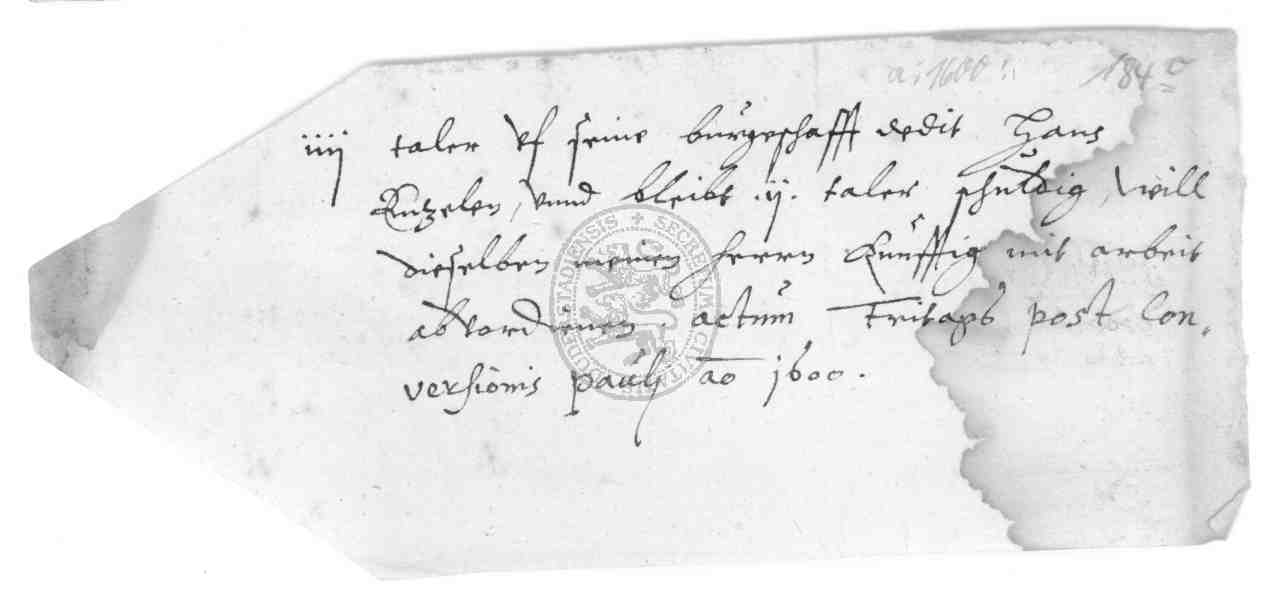 a: 1600 :. 184
iiij taler vf seine burgeschafft dedit Hans
Kutzelen, vnnd bleibt .ij. taler schuldig, will
dieselben meinen herrn Künfftig mit arbeit
abvordienen. actum Fritags post Con„
versionis pauli ao 1600.
SECRETUM CIVITATIS DUDERSTADIENSIS